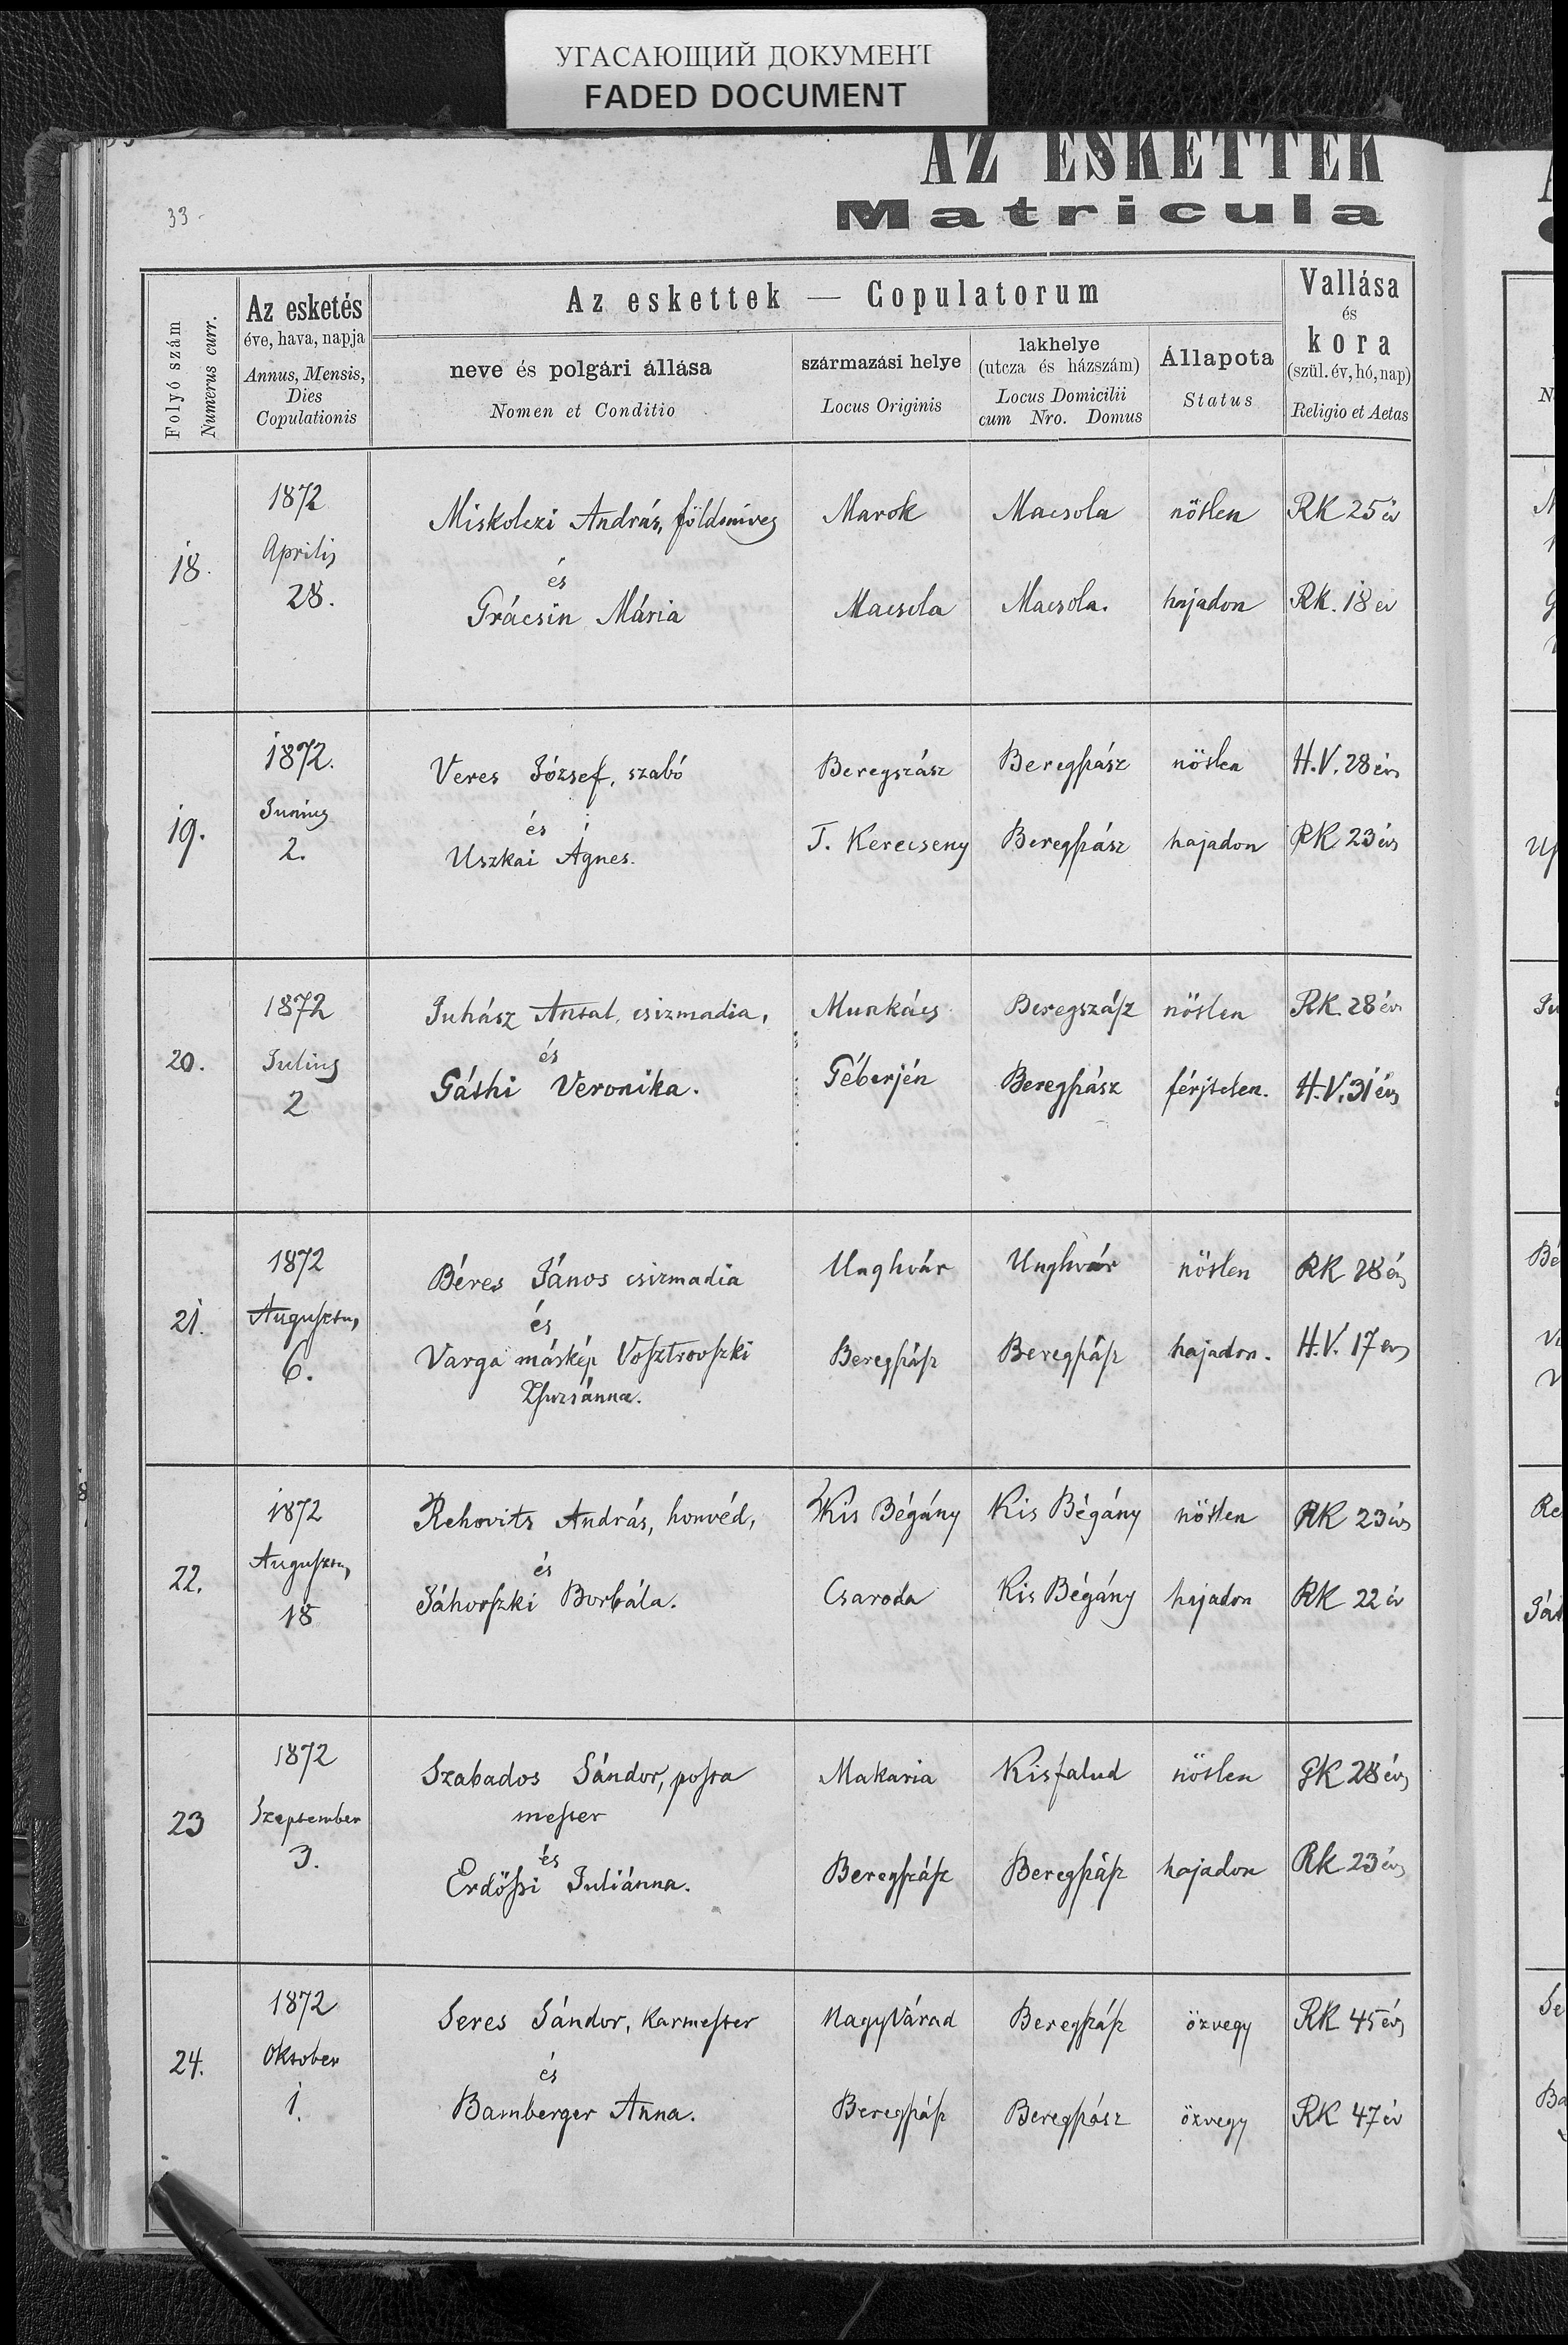 УГАСАЮЩИЙ ДОКУМЕНТ
FADED DOCUMENT
AZ ESKETTEK
Matricula
33
Folyó szám
Numerus curr.
Az esketés
éve, hava, napja
Annus, Mensis,
Dies
Copulationis
Az eskettek — Copulatorum
neve és polgári állása
Nomen et Conditio
származási helye
Locus Originis
lakhelye
(utcza és házszám)
Locus Domicilii
cum Nro. Domus
Állapota
Status
Vallása
és
kora
(szül. év, hó, nap)
Religio et Aetas
18. 1872 Miskolczi András, földmíves Marok Macsola nőtlen RK 25 év
Aprilis
28. és
Grácsin Mária Macsola Macsola. hajadon RK. 18 év
19. 1872. Veres József, szabó Beregszász Beregszász nőtlen H.V. 28 év
Junius
2. és
Uszkai Ágnes. T. Kerecseny Beregszász hajadon RK 23 év
20. 1872 Juhász Antal, csizmadia, Munkács Beregszász nőtlen RK. 28 év
Julius
2 és
Gáthi Veronika. Géberjén Beregszász férjtelen. H.V. 31 év
21. 1872 Béres János csizmadia Unghvár Unghvár nőtlen RK 28 év
Augusztus
6. és
Varga máskép Vosztrovszki Beregszász Beregszász hajadon. H.V. 17 év
Zsuzsánna.
22. 1872 Rehovits András, honvéd, Kis Bégány Kis Bégány nőtlen RK 23 év
Augusztus
18 és
Jáhovszki Borbála. Csaroda Kis Bégány hajadon RK 22 év
23 1872 Szabados Sándor, posta Makaria Kisfalud nőtlen GK 28 év
mester
Szeptember
3. és
Erdőssi Juliánna. Beregszász Beregszász hajadon RK 23 év
24. 1872 Seres Sándor, Karmester NagyVárad Beregszász özvegy RK 45 év
Oktober
1. és
Bamberger Anna. Beregszász Beregszász özvegy RK 47 év